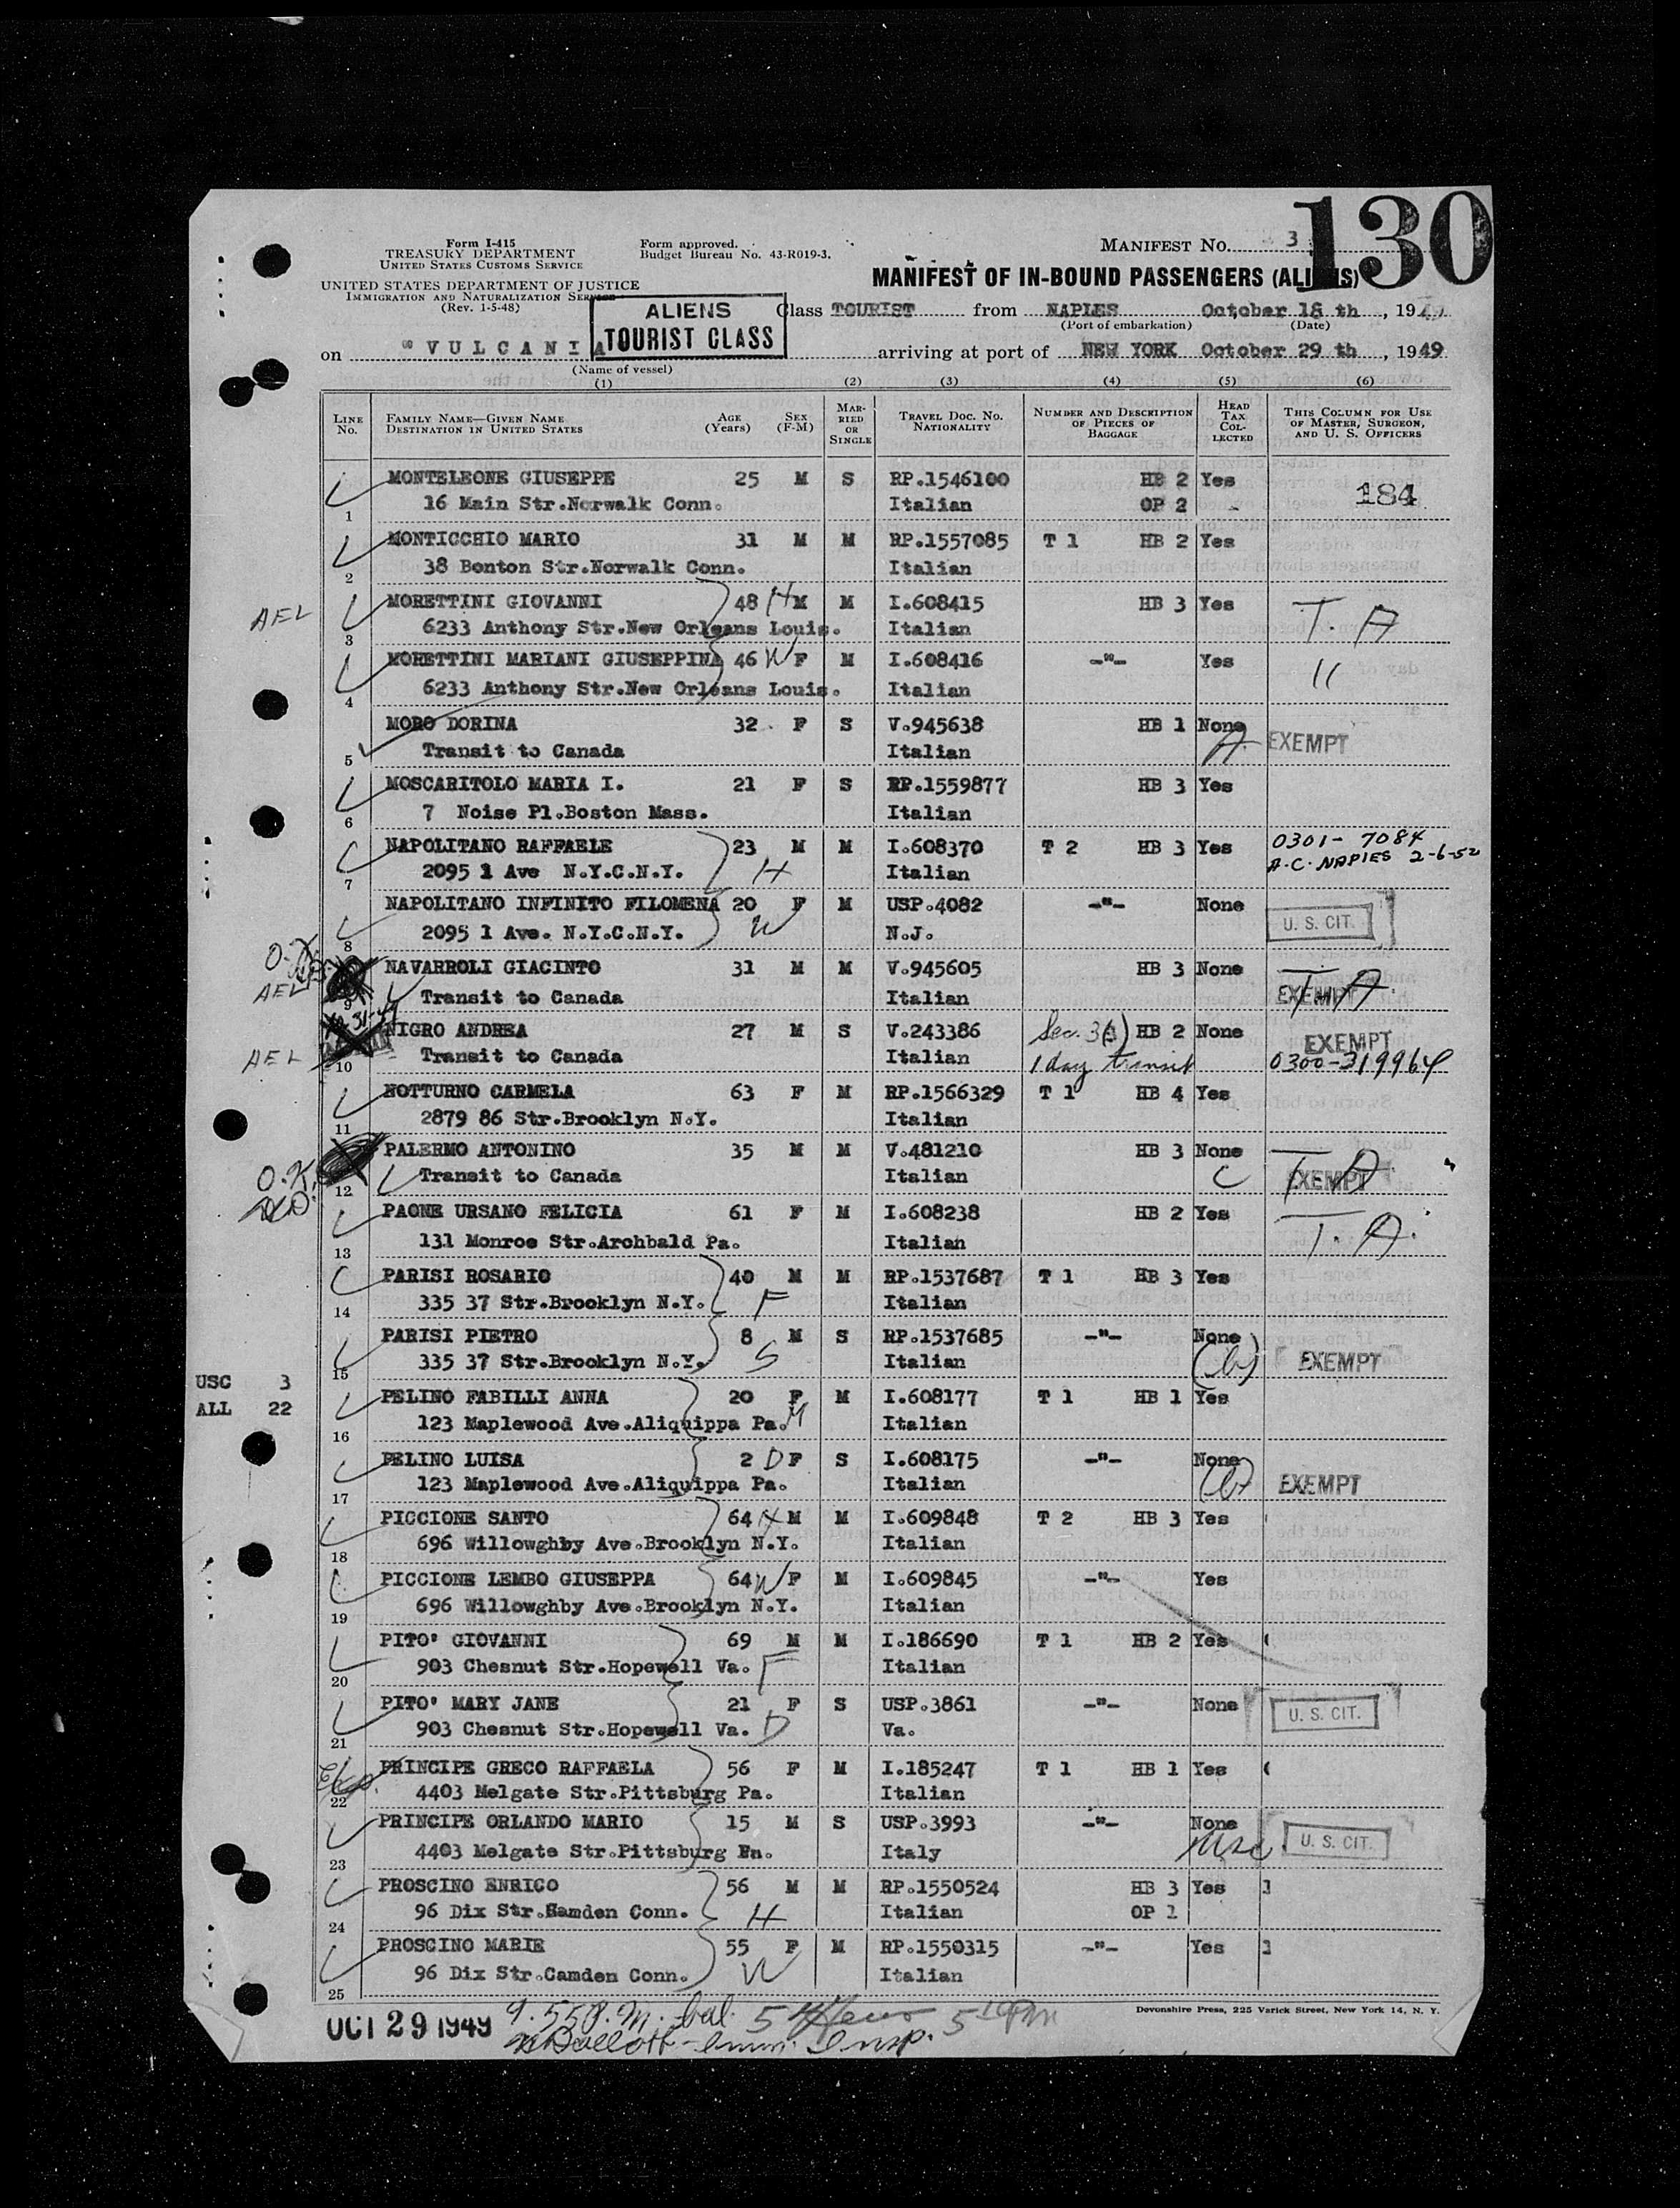 130
Form I-415
TREASURY DEPARTMENT
UNITED STATES CUSTOMS SERVICE
Form approved.
Budget Bureau No. 43-R019-3.
MANIFEST No. 3
UNITED STATES DEPARTMENT OF JUSTICE
IMMIGRATION AND NATURALIZATION SERVICE
(Rev. 1-5-48)
MANIFEST OF IN-BOUND PASSENGERS (ALIENS)
ALIENS
TOURIST CLASS
Class TOURIST from NAPLES October 18 th, 19
(Port of embarkation) (Date)
on "VULCANIA arriving at port of NEW YORK October 29 th, 1949
(Name of vessel)
(1) (2) (3) (4) (5) (6)
LINE No. FAMILY NAME—GIVEN NAME DESTINATION IN UNITED STATES AGE (Years) SEX (F-M) MARRIED OR SINGLE TRAVEL DOC. NO. NATIONALITY NUMBER AND DESCRIPTION OF PIECES OF BAGGAGE HEAD TAX COLLECTED THIS COLUMN FOR USE OF MASTER, SURGEON, AND U. S. OFFICERS
MONTELEONE GIUSEPPE 25 M S RP.1546100 HB 2 Yes 184
1 16 Main Str.Norwalk Conn. Italian OP 2 -
MONTICCHIO MARIO 31 M M RP.1557085 T 1 HB 2 Yes
2 38 Benton Str.Norwalk Conn. Italian
AEL MORETTINI GIOVANNI 48 H M M I.608415 HB 3 Yes T. A
3 6233 Anthony Str.New Orleans Louis. Italian
MORETTINI MARIANI GIUSEPPINA 46 W F M I.608416 -"- Yes "
4 6233 Anthony Str.New Orleans Louis. Italian
MORO DORINA 32 F S V.945638 HB 1 None EXEMPT
5 Transit to Canada Italian
MOSCARITOLO MARIA I. 21 F S RP.1559877 HB 3 Yes
6 7 Noise Pl.Boston Mass. Italian
NAPOLITANO RAFFAELE 23 M M I.608370 T 2 HB 3 Yes 0301- 7084
7 2095 1 Ave N.Y.C.N.Y. H Italian A.C. NAPLES 2-6-52
NAPOLITANO INFINITO FILOMENA 20 F M USP.4082 -"- None U. S. CIT.
8 2095 1 Ave. N.Y.C.N.Y. W N.J.
O.K. NAVARROLI GIACINTO 31 M M V.945605 HB 3 None T. A.
AEL 9 Transit to Canada Italian EXEMPT
NIGRO ANDREA 27 M S V.243386 Sec. 3(3) HB 2 None EXEMPT
AEL 10 Transit to Canada Italian 1 day transit 0300-319964
NOTTURNO CARMELA 63 F M RP.1566329 T 1 HB 4 Yes
11 2879 86 Str.Brooklyn N.Y. Italian
PALERMO ANTONINO 35 M M V.481210 HB 3 None T A
O.K. 12 Transit to Canada Italian C EXEMPT
PAONE URSANO FELICIA 61 F M I.608238 HB 2 Yes T. A.
13 131 Monroe Str.Archbald Pa. Italian
PARISI ROSARIO 40 M M RP.1537687 T 1 HB 3 Yes
14 335 37 Str.Brooklyn N.Y. F Italian
PARISI PIETRO 8 M S RP.1537685 -"- None
15 335 37 Str.Brooklyn N.Y. S Italian (b) EXEMPT
USC 3
ALL 22
PELINO FABILLI ANNA 20 F M I.608177 T 1 HB 1 Yes
16 123 Maplewood Ave.Aliquippa Pa. M Italian
PELINO LUISA 2 D F S I.608175 -"- None
17 123 Maplewood Ave.Aliquippa Pa. Italian (b) EXEMPT
PICCIONE SANTO 64 H M M I.609848 T 2 HB 3 Yes
18 696 Willowghby Ave.Brooklyn N.Y. Italian
PICCIONE LEMBO GIUSEPPA 64 W F M I.609845 -"- Yes
19 696 Willowghby Ave.Brooklyn N.Y. Italian
PITO' GIOVANNI 69 M M I.186690 T 1 HB 2 Yes
20 903 Chesnut Str.Hopewell Va. F Italian
PITO' MARY JANE 21 F S USP.3861 -"- None U. S. CIT.
21 903 Chesnut Str.Hopewell Va. D Va.
PRINCIPE GRECO RAFFAELA 56 F M I.185247 T 1 HB 1 Yes
22 4403 Melgate Str.Pittsburg Pa. Italian
PRINCIPE ORLANDO MARIO 15 M S USP.3993 -"- None U. S. CIT.
23 4403 Melgate Str.Pittsburg Pa. Italy usc
PROSCINO ENRICO 56 M M RP.1550524 HB 3 Yes
24 96 Dix Str.Hamden Conn. H Italian OP 1
PROSCINO MARIE 55 F M RP.1550315 -"- Yes
25 96 Dix Str.Camden Conn. W Italian
Devonshire Press, 225 Varick Street, New York 14, N. Y.
OCT 29 1949
Insp.